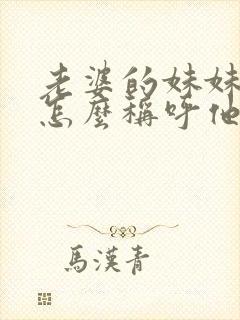 老婆的妹妹
怎麼稱呼他
馬漢青